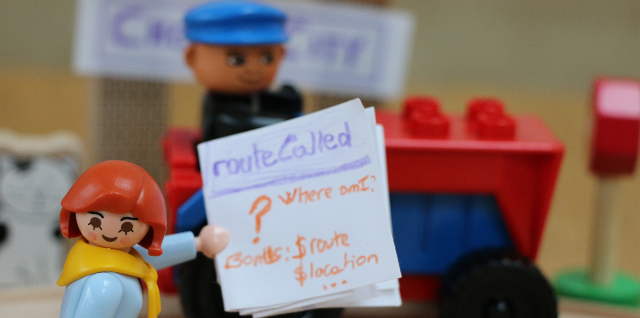 routeCalled
? Where am I?
Bonus: $route
$location
...